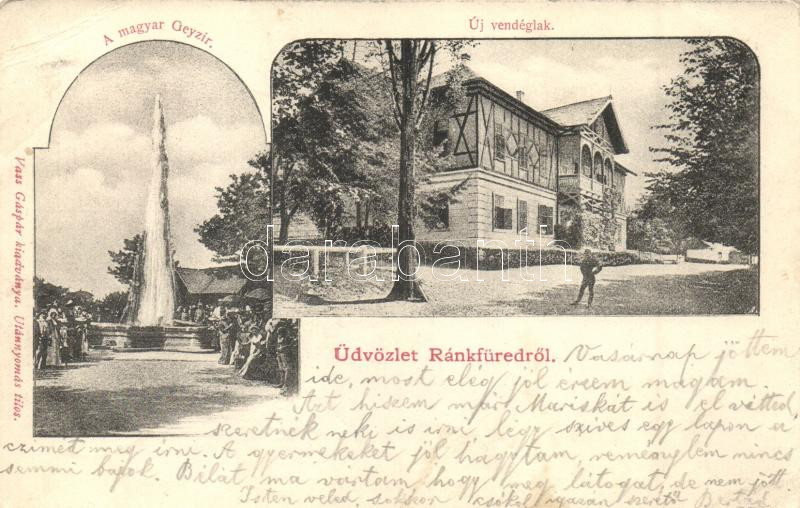 A magyar Geyzir.
Új vendéglak.
Vass Gáspár kiadványa. Utánnyomás tilos.
darabanth
Üdvözlet Ránkfüredről. Vasárnap jöttem
ide, most elég jól érzem magam.
Azt hiszem már Mariskát is el vitted,
szeretnék neki is irni légy szives egy lapon a
czimét meg irni. A gyermekeket jól hagytam, remenylem nincs
semmi bajok. Bélát ma vártam hogy meg látogat, de nem jött.
Isten veled, sokszor csókol igazán szerető